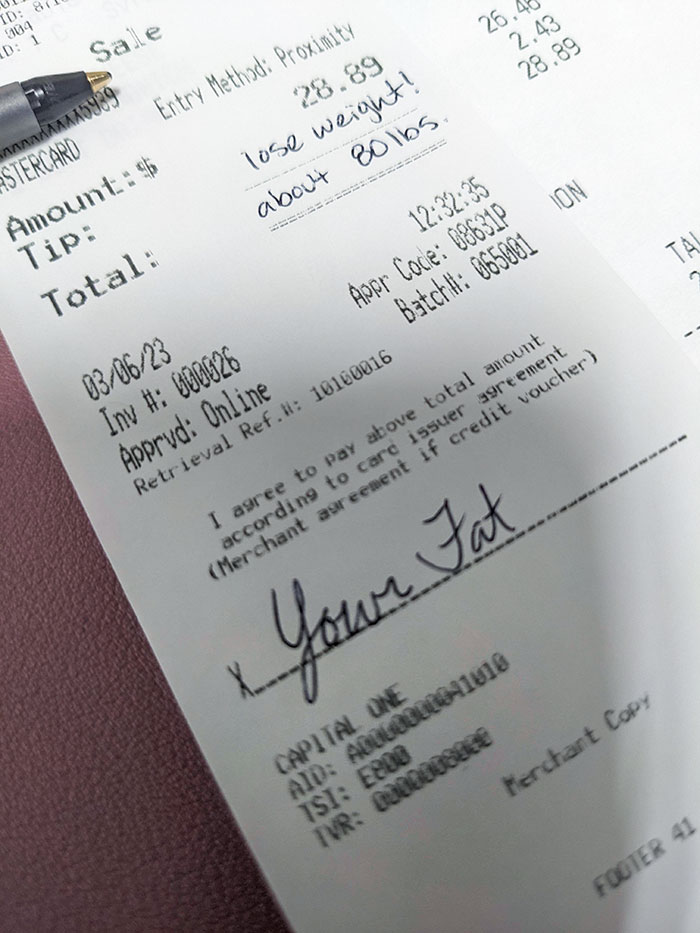 004
ID: 1
Sale
5939
MASTERCARD
Entry Method: Proximity
Amount:$ 28.89
Tip: lose weight!
Total: about 80 lbs.
03/06/23 12:32:35
Inv #: 000026 Appr Code: 08631P
Apprvd: Online Batch#: 065001
Retrieval Ref.#: 10100016
I agree to pay above total amount
according to card issuer agreement
(Merchant agreement if credit voucher)
X Your Fat
CAPITAL ONE
AID: A0000000041010
TSI: E800
TVR: 0000008000
Merchant Copy
FOOTER 41
26.46
2.43
28.89
ION